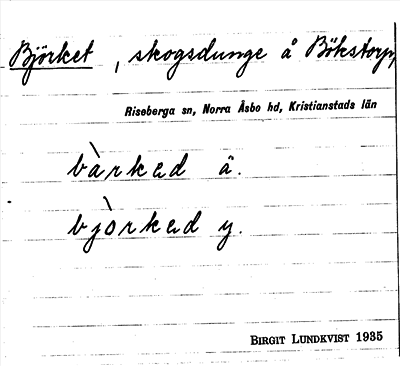 Björket, skogsdunge å Bökstorp,
Riseberga sn, Norra Åsbo hd, Kristianstads län
bàrkad ä.
bjòrkad y.
BIRGIT LUNDKVIST 1935